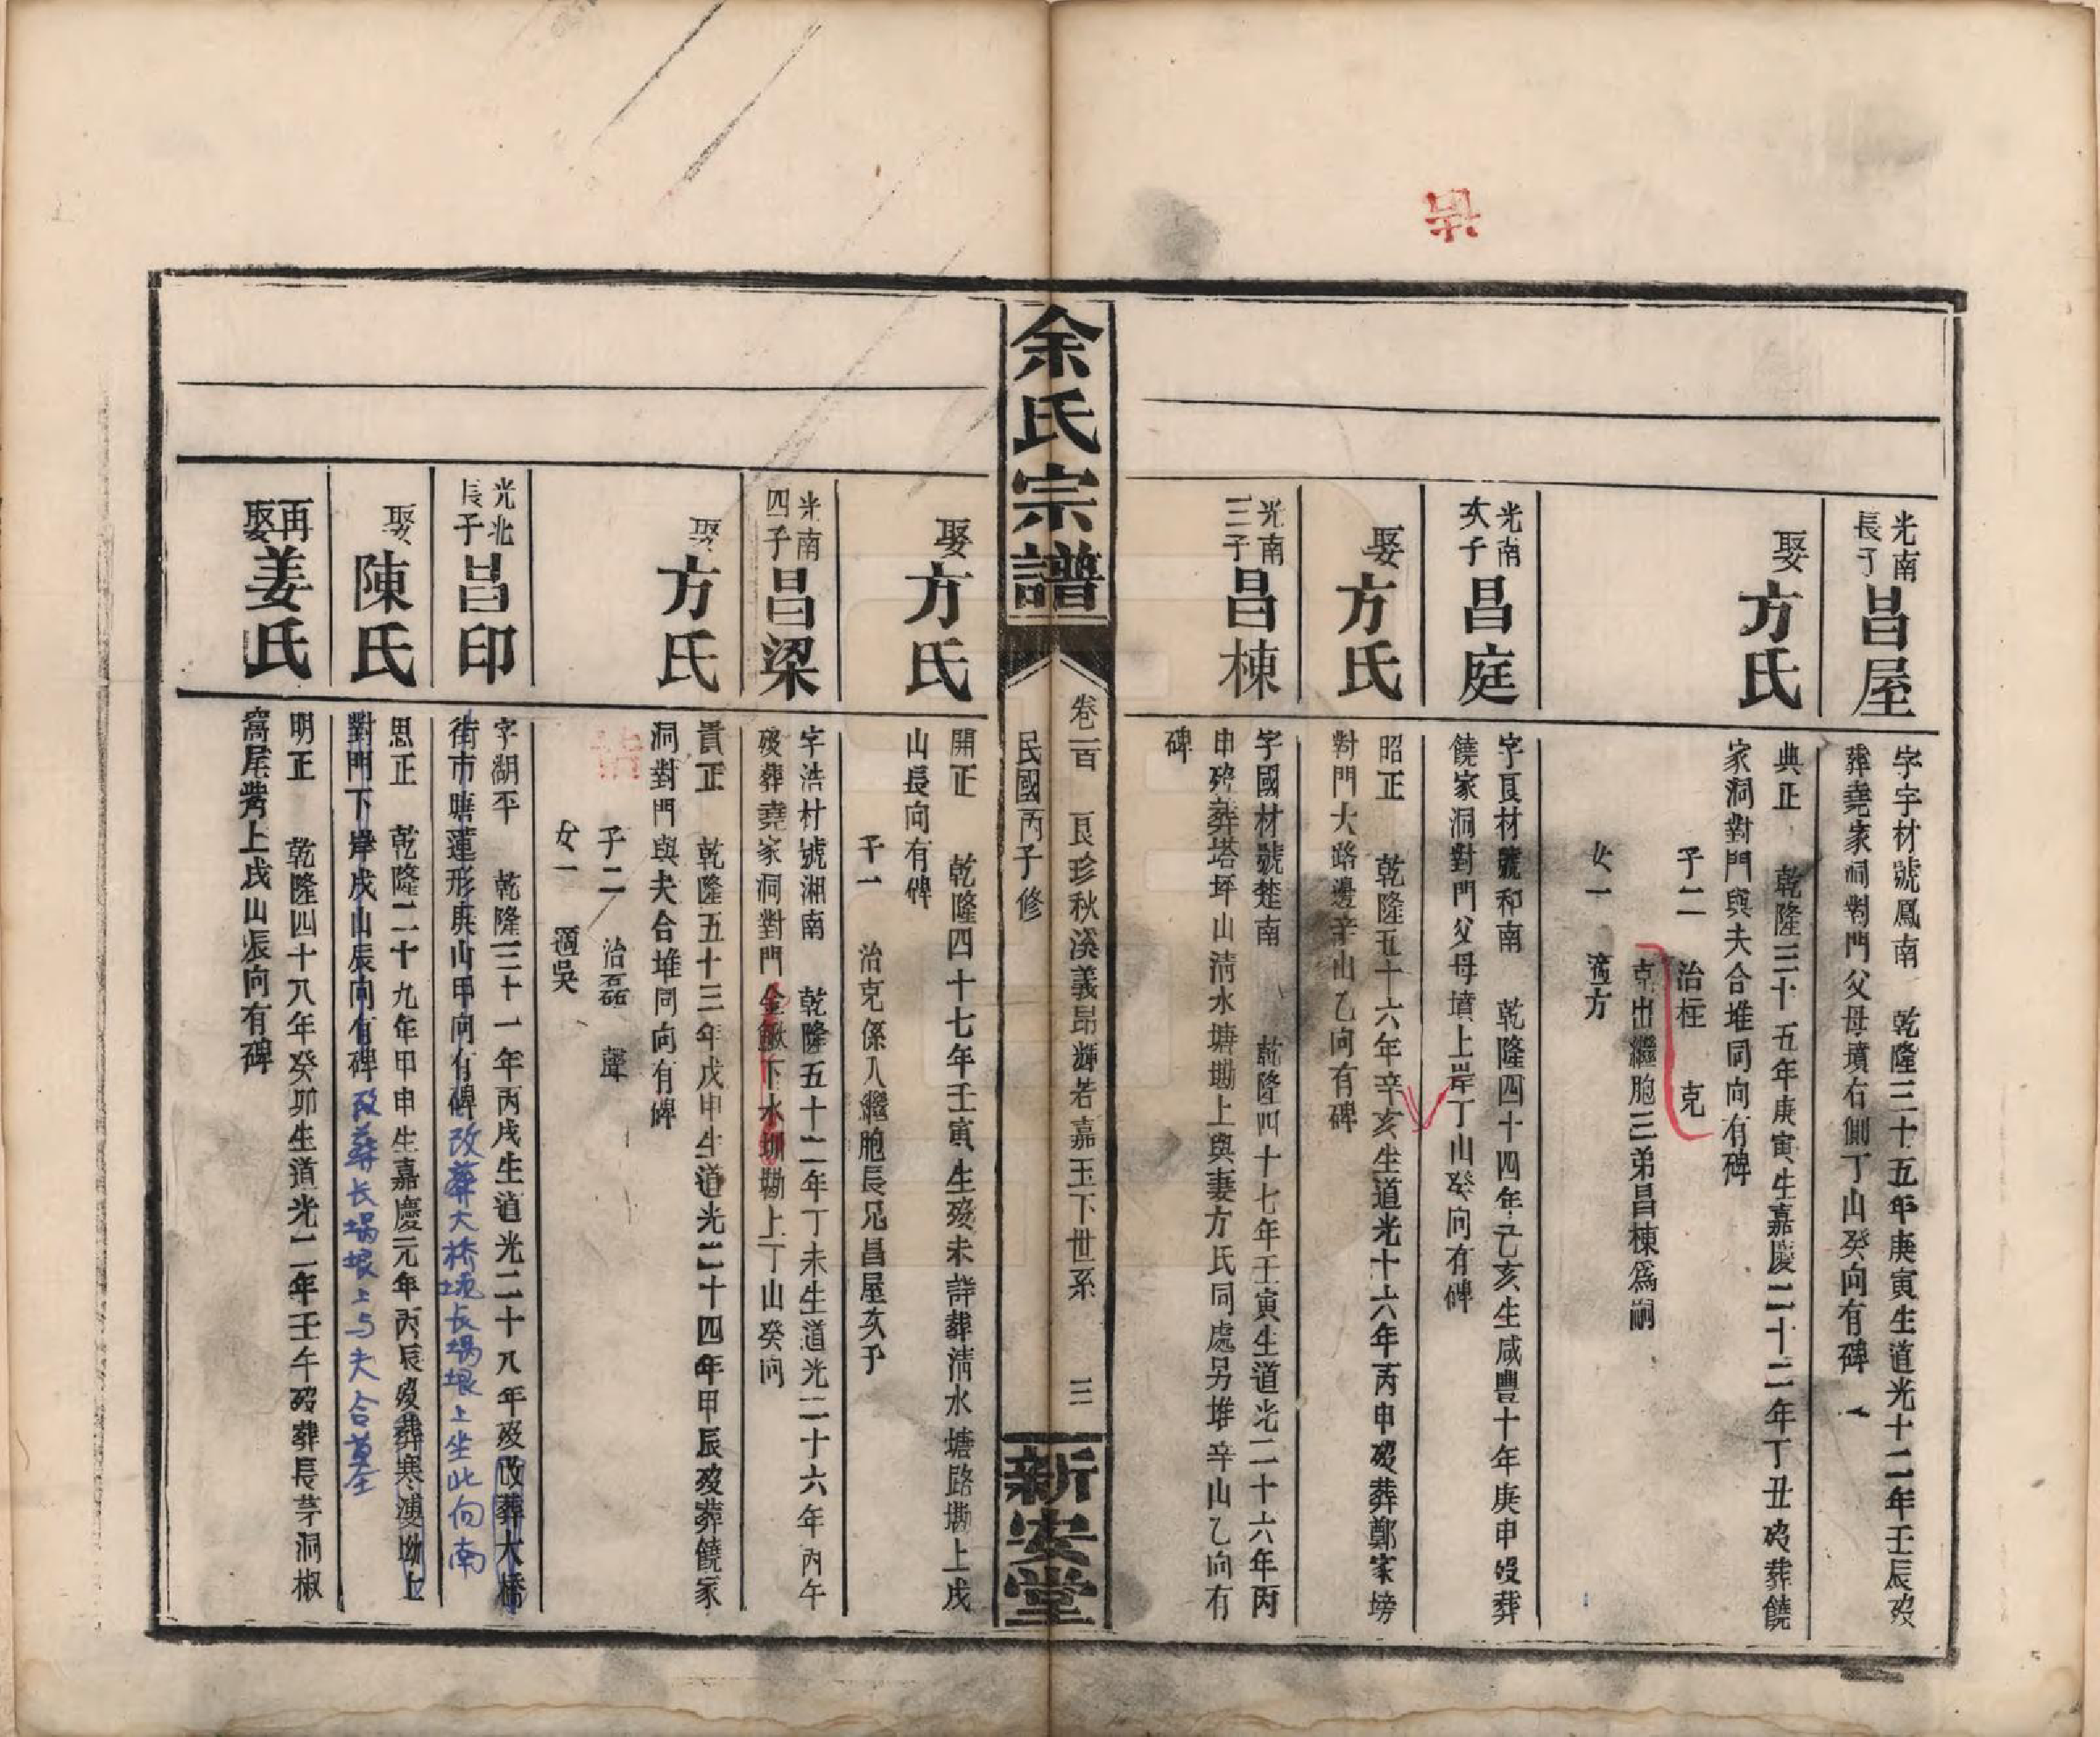 光南長子
昌屋
字宇材號鳳南　乾隆三十五年庚寅生道光十二年壬辰歿
葬堯家洞對門父母墳右側丁山癸向有碑
娶
方氏
典正　乾隆三十五年庚寅生嘉慶二十二年丁丑歿葬饒
家洞對門與夫合堆同向有碑
子二　治柱　克
克出繼胞三弟昌棟爲嗣
女一　適方
光南次子
昌庭
字良材號和南　乾隆四十四年己亥生咸豐十年庚申歿葬
饒家洞對門父母墳上岸丁山癸向有碑
娶
方氏
昭正　乾隆五十六年辛亥生道光十六年丙申歿葬鄭家塝
對門大路邊辛山乙向有碑
光南三子
昌棟
字國材號楚南　乾隆四十七年壬寅生道光二十六年丙
申歿葬塔坪山清水塘墈上與妻方氏同處另堆辛山乙向有
碑
余氏宗譜
卷一百　良珍秋溪義昂輝若嘉玉下世系　三
民國丙子修
新安堂
娶
方氏
開正　乾隆四十七年壬寅生歿未詳葬清水塘路墈上戌
山長向有碑
子一　治克係入繼胞長兄昌屋次子
光南四子
昌梁
字浩材號湘南　乾隆五十二年丁未生道光二十六年丙午
歿葬堯家洞對門金鰍下水圳墈上丁山癸向
娶
方氏
貴正　乾隆五十三年戊申生道光二十四年甲辰歿葬饒家
洞對門與夫合堆同向有碑
子二　治磊　聲
女一　適吳
光北長子
昌印
字湖平　乾隆三十一年丙戌生道光二十八年歿改葬大橋
街市塘蓮形庚山甲向有碑改葬大桥境长塅垠上坐北向南
娶
陳氏
思正　乾隆二十九年甲申生嘉慶元年丙辰歿葬寒婆坳上
對門下岸戌山辰向有碑改葬长塅垠上与夫合墓
再娶
姜氏
明正　乾隆四十八年癸卯生道光二年壬午歿葬長茅洞椒
窩屋灣上戌山辰向有碑